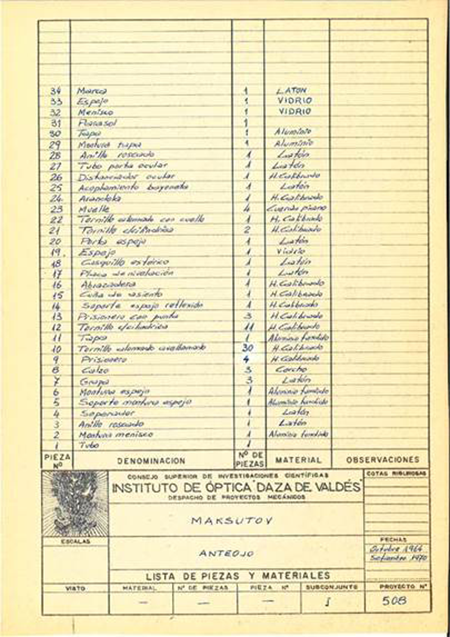 34 Marca 1 LATON
33 Espejo 1 VIDRIO
32 Menisco 1 VIDRIO
31 Parasol 1
30 Tapa 1 Aluminio
29 Montura tapa 1 Aluminio
28 Anillo roscado 1 Latón
27 Tubo porta ocular 1 Latón
26 Distanciador ocular 1 H. Calibrado
25 Acoplamiento bayoneta 1 Latón
24 Arandela 1 H. Calibrado
23 Muelle 4 Cuerda piano
22 Tornillo alomado con cuello 1 H. Calibrado
21 Tornillo cilíndrica 2 H. Calibrado
20 Porta espejo 1 Latón
19 Espejo 1 Vidrio
18 Casquillo esférico 1 Latón
17 Placa de nivelación 1 Latón
16 Abrazadera 1 H. Calibrado
15 Cuña de asiento 1 H. Calibrado
14 Soporte espejo reflexión 1 H. Calibrado
13 Prisionero con punta 3 H. Calibrado
12 Tornillo c/cilíndrica 11 H. Calibrado
11 Tapa 1 Aluminio fundido
10 Tornillo alomado avellanado 30 H. Calibrado
9 Prisionero 4 H. Calibrado
8 Calzo 3 Corcho
7 Grapa 3 Latón
6 Montura espejo 1 Aluminio fundido
5 Soporte montura espejo 1 Aluminio fundido
4 Separador 1 Latón
3 Anillo roscado 1 Latón
2 Montura menisco 1 Aluminio fundido
1 Tubo 1
PIEZA Nº DENOMINACION Nº DE PIEZAS MATERIAL OBSERVACIONES
CONSEJO SUPERIOR DE INVESTIGACIONES CIENTÍFICAS
INSTITUTO DE ÓPTICA "DAZA DE VALDÉS"
DESPACHO DE PROYECTOS MECÁNICOS
COTAS RIGUROSAS
MAKSUTOV
ESCALAS
ANTEOJO
FECHAS
Octubre 1964
Setiembre 1970
LISTA DE PIEZAS Y MATERIALES
VISTO MATERIAL Nº DE PIEZAS PIEZA Nº SUBCONJUNTO PROYECTO Nº
— — — 1 508